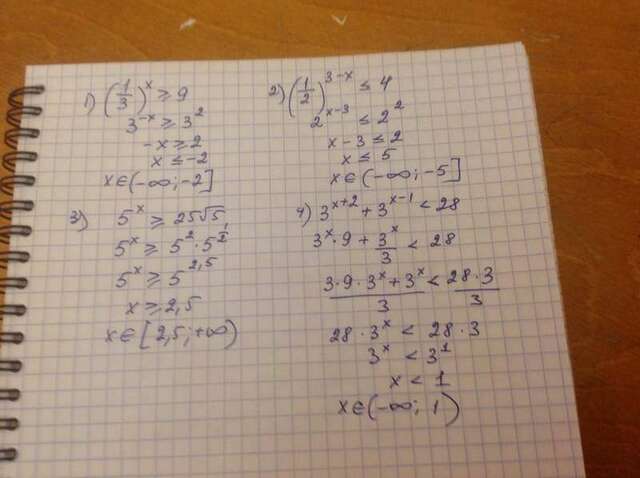 1) (1/3)^x ≥ 9
3^(-x) ≥ 3^2
-x ≥ 2
x ≤ -2
x ∈ (-∞; -2]
2) (1/2)^(3-x) ≤ 4
2^(x-3) ≤ 2^2
x - 3 ≤ 2
x ≤ 5
x ∈ (-∞; -5]
3) 5^x ≥ 25√5
5^x ≥ 5^2 · 5^(1/2)
5^x ≥ 5^(2,5)
x ≥ 2,5
x ∈ [2,5; +∞)
4) 3^(x+2) + 3^(x-1) < 28
3^x · 9 + 3^x/3 < 28
(3 · 9 · 3^x + 3^x)/3 < (28 · 3)/3
28 · 3^x < 28 · 3
3^x < 3^1
x < 1
x ∈ (-∞; 1)